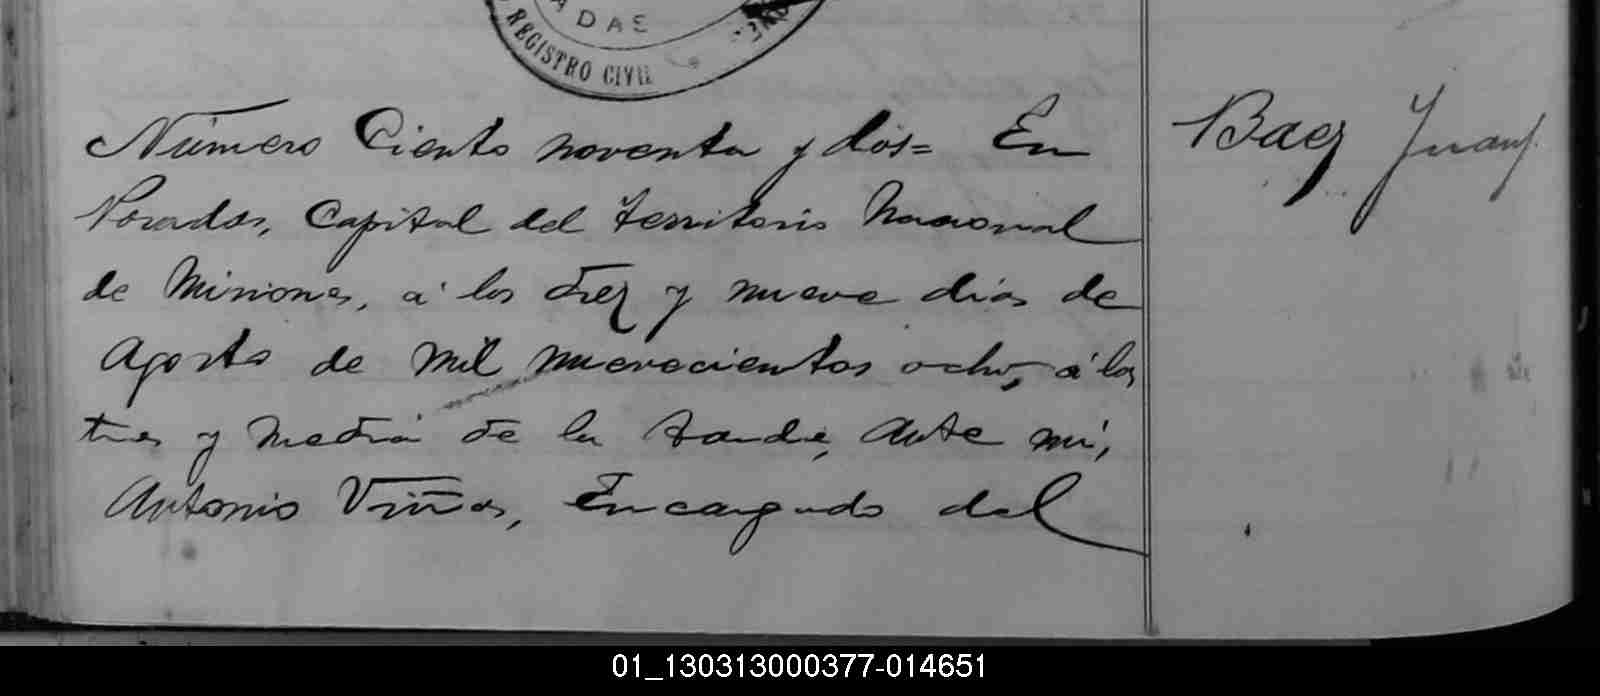 ADAS
REGISTRO CIVIL
Número Ciento noventa y dos= En
Posadas, Capital del territorio Nacional
de Misiones, á los diez y nueve dias de
Agosto de mil nuevecientos ocho, á las
tres y media de la tarde, ante mi,
Antonio Viñas, Encargado del
Baez Juan
01_130313000377-014651